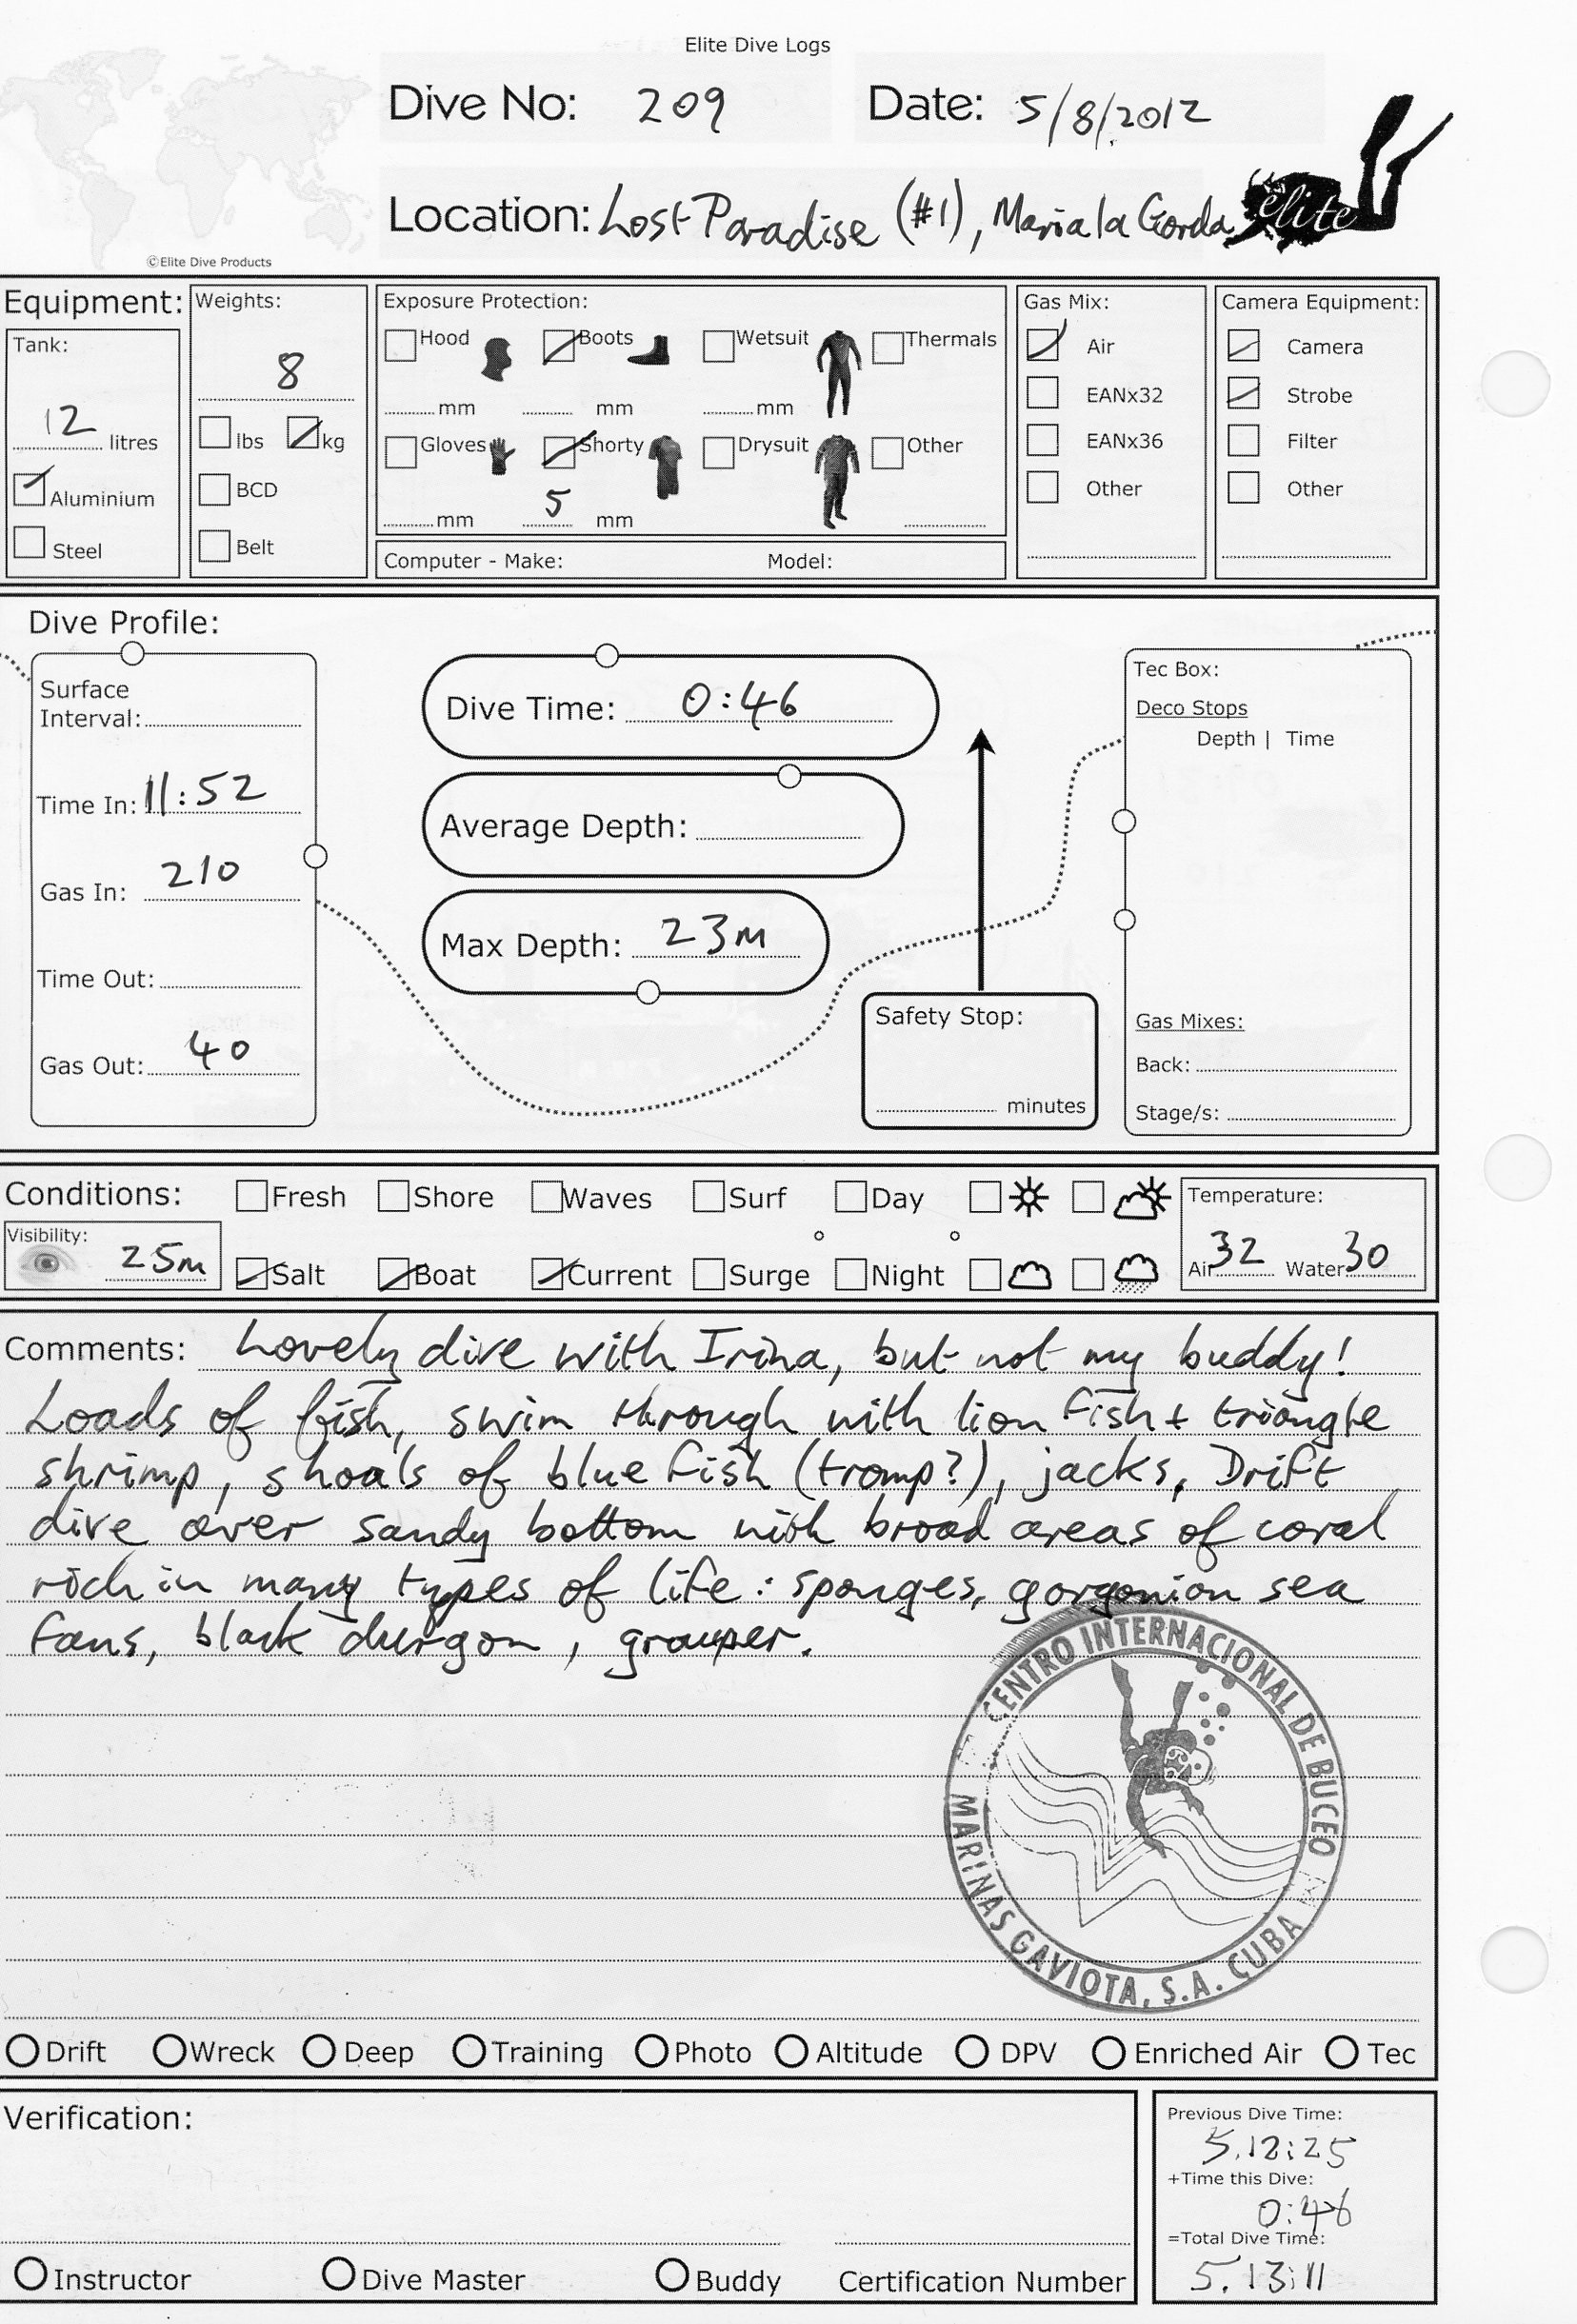 Elite Dive Logs
Dive No: 209 Date: 5/8/2012
Location: Lost Paradise (#1), Maria la Gorda
elite
©Elite Dive Products
Equipment:
Tank:
12 litres
Aluminium
Steel
Weights:
8
lbs kg
BCD
Belt
Exposure Protection:
Hood Boots Wetsuit Thermals
mm mm mm
Gloves Shorty Drysuit Other
mm 5 mm
Computer - Make: Model:
Gas Mix:
Air
EANx32
EANx36
Other
Camera Equipment:
Camera
Strobe
Filter
Other
Dive Profile:
Surface
Interval:
Time In: 11:52
Gas In: 210
Time Out:
Gas Out: 40
Dive Time: 0:46
Average Depth:
Max Depth: 23m
Safety Stop:
minutes
Tec Box:
Deco Stops
Depth | Time
Gas Mixes:
Back:
Stage/s:
Conditions: Fresh Shore Waves Surf Day
Visibility: 25m
Salt Boat Current Surge Night
Temperature:
Air 32 Water 30
Comments: Lovely dive with Irina, but not my buddy!
Loads of fish, swim through with lion fish + triangle
shrimp, shoals of blue fish (tromp?), jacks. Drift
dive over sandy bottom with broad areas of coral
rich in many types of life: sponges, gorgonion sea
fans, black durgon, grouper.
CENTRO INTERNACIONAL DE BUCEO
MARINAS GAVIOTA, S.A. CUBA
Drift Wreck Deep Training Photo Altitude DPV Enriched Air Tec
Verification:
Instructor Dive Master Buddy Certification Number
Previous Dive Time:
5.12:25
+Time this Dive:
0:46
=Total Dive Time:
5.13:11